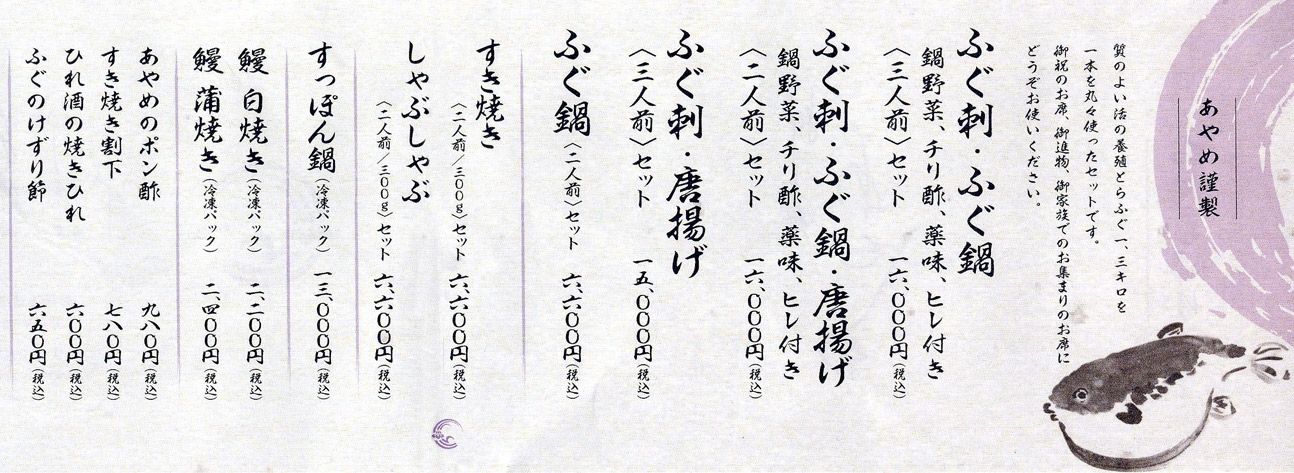 あやめ謹製
質のよい活の養殖とらふぐ一、三キロを
一本を丸々使ったセットです。
御祝のお席、御進物、御家族でのお集まりのお席に
どうぞお使いください。
ふぐ刺・ふぐ鍋
鍋野菜、チリ酢、薬味、ヒレ付き
〈三人前〉セット 一六、〇〇〇円(税込)
ふぐ刺・ふぐ鍋・唐揚げ
鍋野菜、チリ酢、薬味、ヒレ付き
〈二人前〉セット 一六、〇〇〇円(税込)
ふぐ刺・唐揚げ
〈三人前〉セット 一五、〇〇〇円(税込)
ふぐ鍋〈二人前〉セット 六、六〇〇円(税込)
すき焼き
〈二人前/三〇〇g〉セット 六、六〇〇円(税込)
しゃぶしゃぶ
〈二人前/三〇〇g〉セット 六、六〇〇円(税込)
すっぽん鍋(冷凍パック) 一三、〇〇〇円(税込)
鰻 白焼き(冷凍パック) 二、二〇〇円(税込)
鰻 蒲焼き(冷凍パック) 二、四〇〇円(税込)
あやめのポン酢 九八〇円(税込)
すき焼き割下 七八〇円(税込)
ひれ酒の焼きひれ 六〇〇円(税込)
ふぐのけずり節 六五〇円(税込)